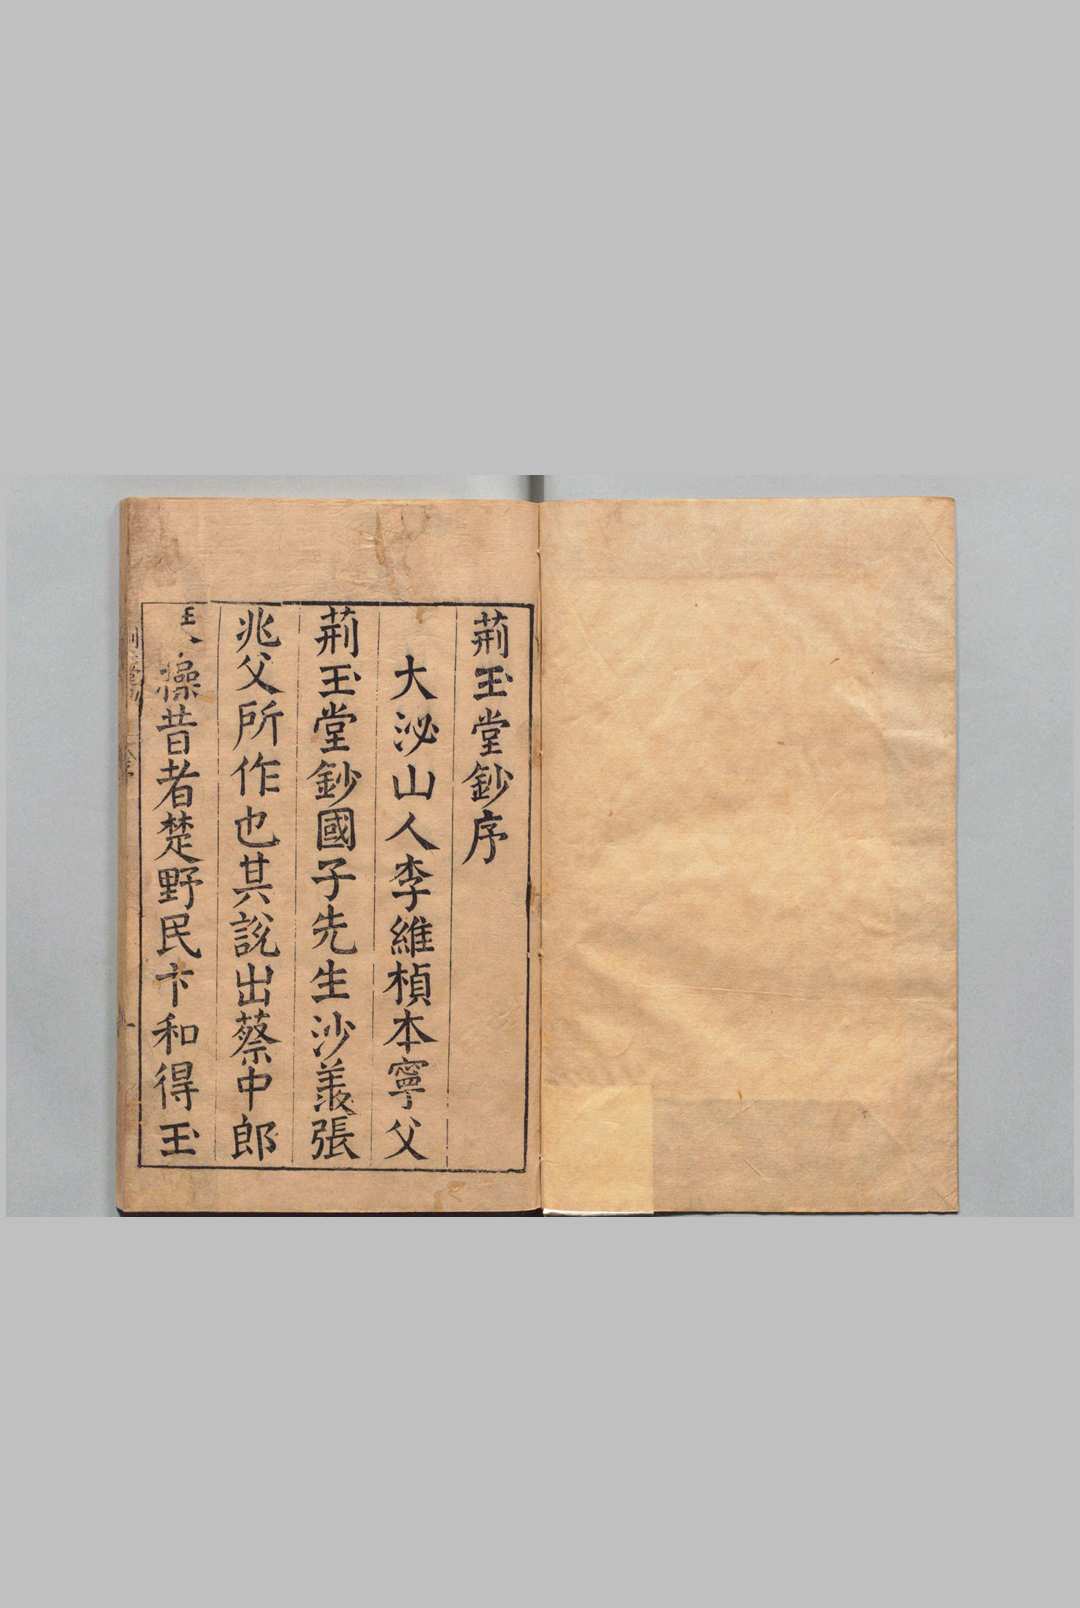 荊玉堂鈔序
大泌山人李維楨本寧父
荊玉堂鈔國子先生沙羨張
兆父所作也其說出蔡中郎
操昔者楚野民卞和得玉